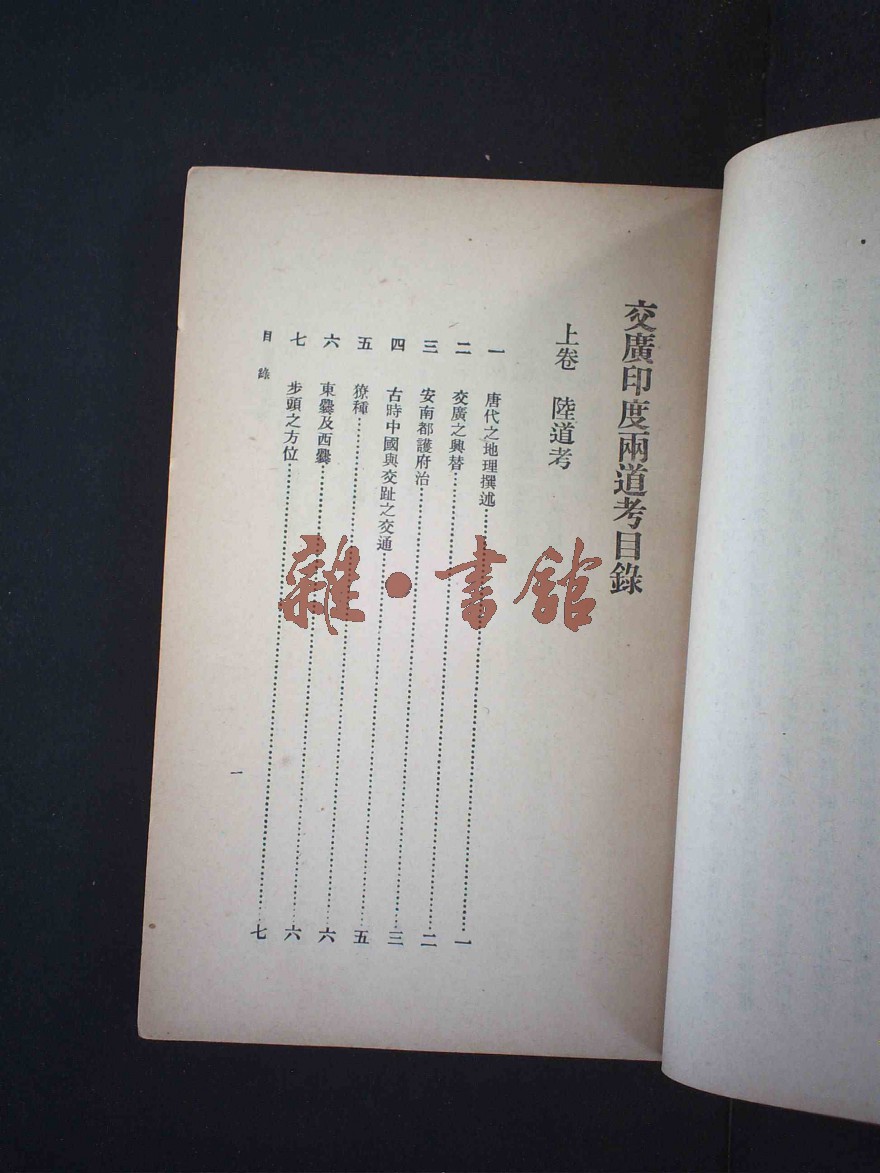 交廣印度兩道考目錄
上卷 陸道考
一 唐代之地理撰述……一
二 交廣之興替……二
三 安南都護府治……三
四 古時中國與交趾之交通……五
五 獠種……六
六 東爨及西爨……六
七 步頭之方位……七
目錄
一
雜·書館